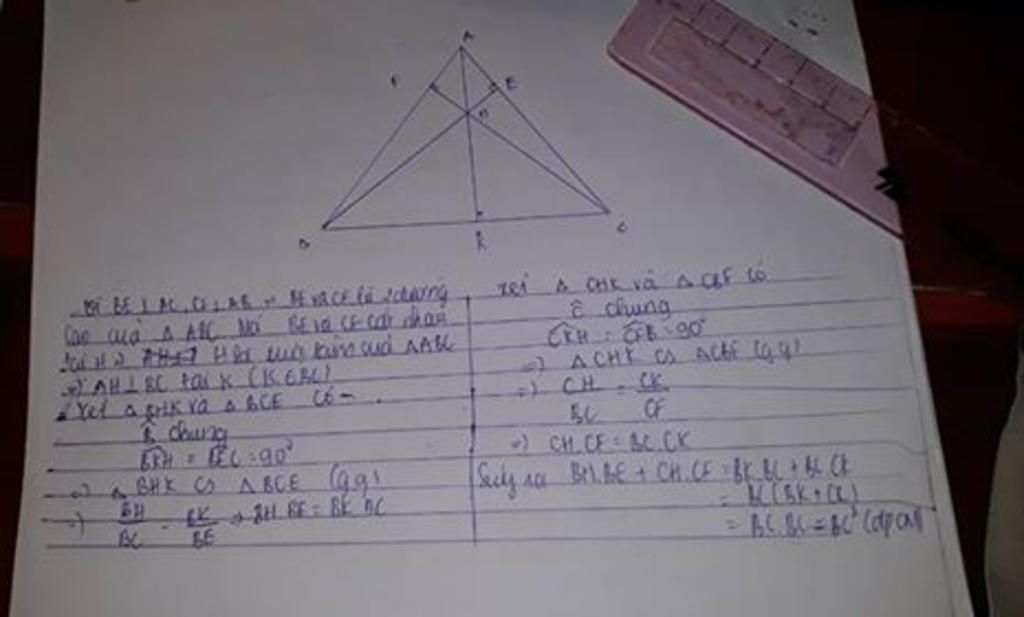 A
F
E
H
B
K
C
Vì BE ⊥ AC, CF ⊥ AB => BE và CF là 2 đường
cao của △ ABC Mà BE và CF cắt nhau
tại H => H là trực tâm của △ABC
=> AH ⊥ BC tại K (K ∈ BC)
Xét △ BHK và △ BCE có
B̂ chung
BKH = BEC = 90°
=> △ BHK ∽ △ BCE (g.g)
=> BH/BC = BK/BE => BH.BE = BK.BC
Xét △ CHK và △ CBF có
Ĉ chung
CKH = CFB = 90°
=> △ CHK ∽ △CBF (g.g)
=> CH/BC = CK/CF
=> CH.CF = BC.CK
Suy ra BH.BE + CH.CF = BK.BC + BC.CK
= BC(BK + CK)
= BC.BC = BC² (đpcm)